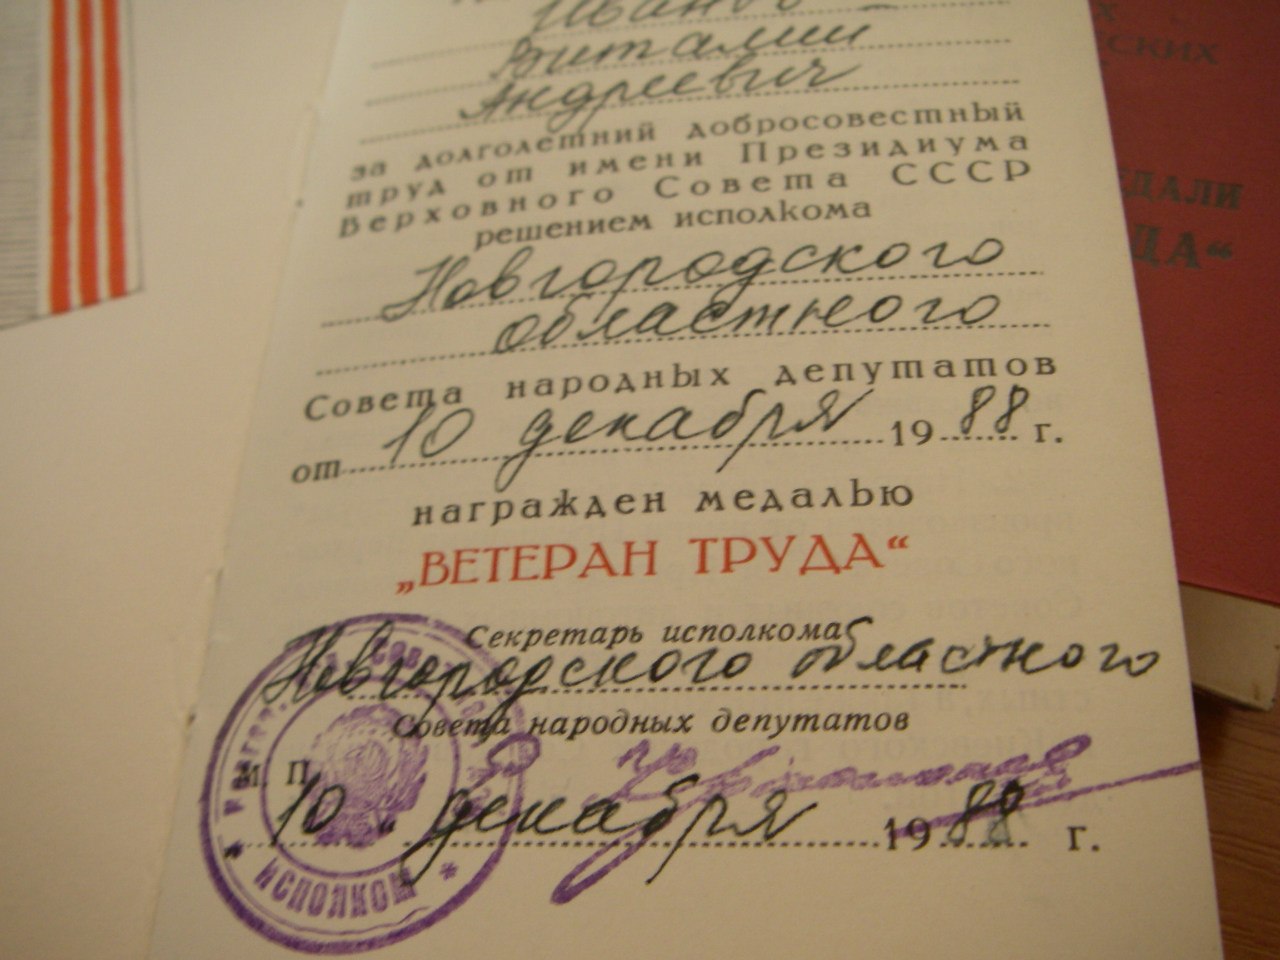 Иванов
Виталий
Андреевич
за долголетний добросовестный
труд от имени Президиума
Верховного Совета СССР
решением исполкома
Новгородского
областного
Совета народных депутатов
от 10 декабря 1988 г.
награжден медалью
„ВЕТЕРАН ТРУДА“
Секретарь исполкома
Новгородского областного
Совета народных депутатов
М. П.
10 " декабря 1988 г.
* ИСПОЛКОМ *
ЕДАЛИ
ДА“